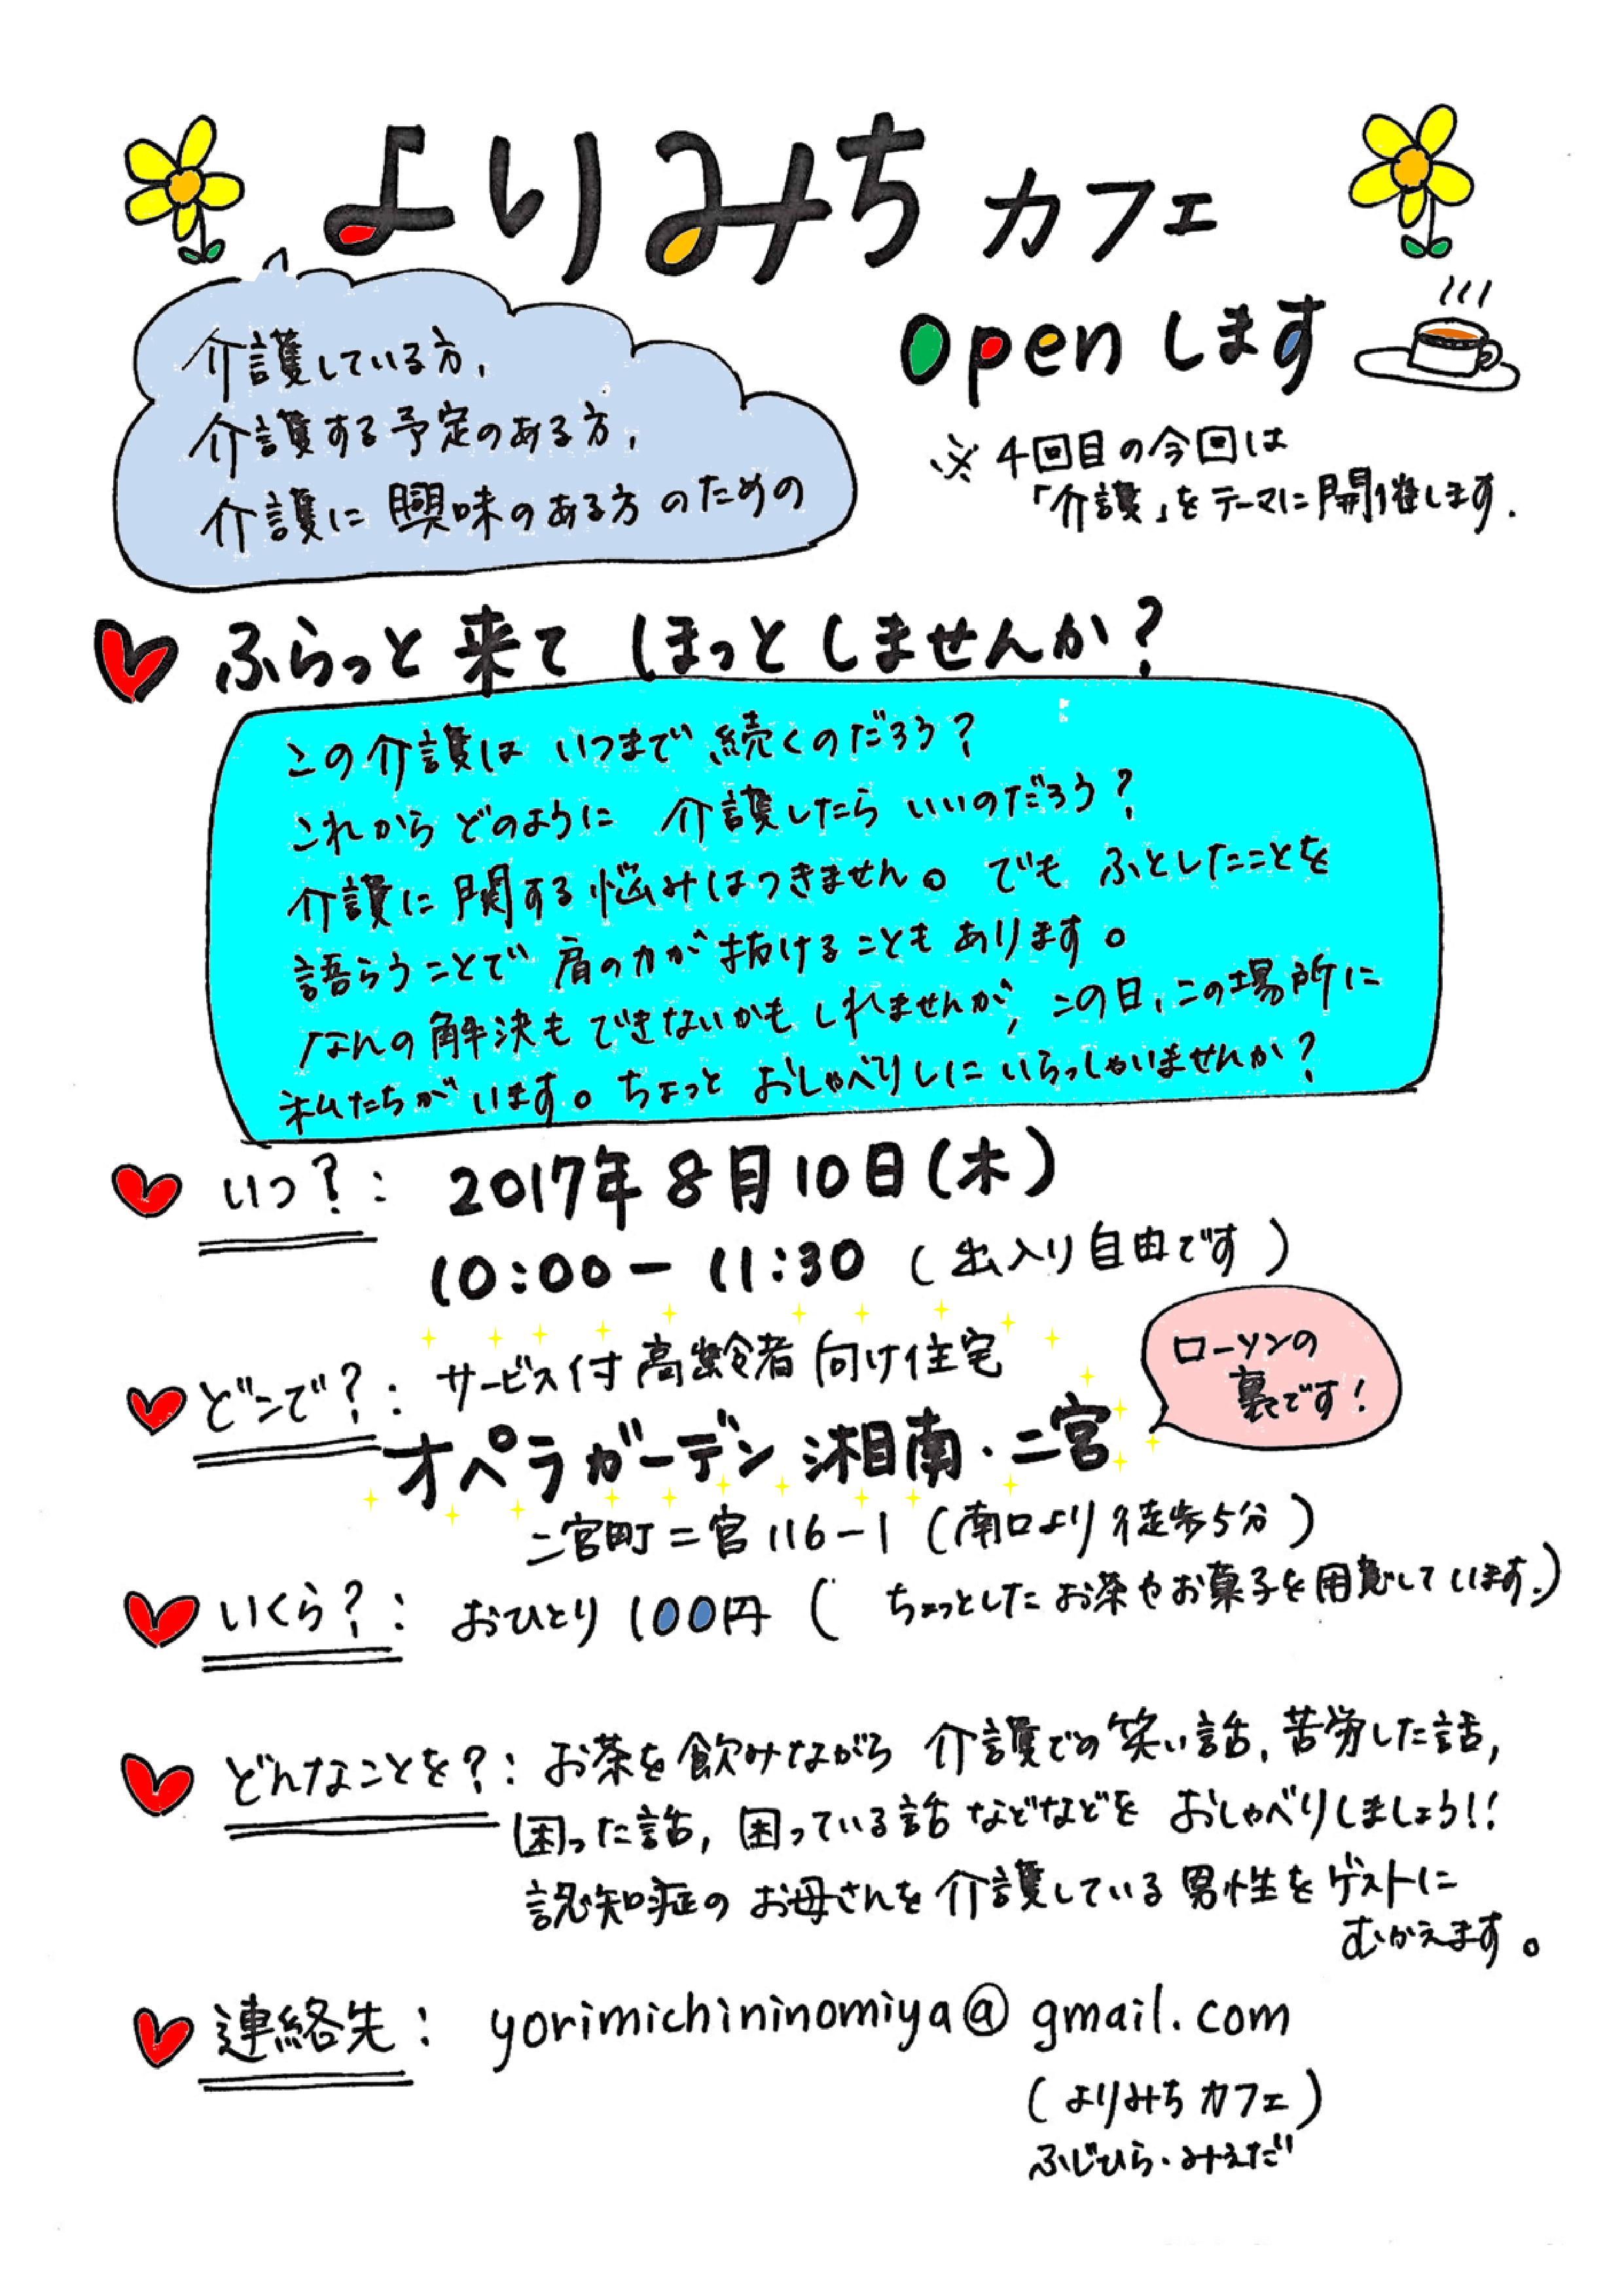 よりみちカフェ
openします
介護している方、
介護する予定のある方、
介護に興味のある方のための
※4回目の今回は
「介護」をテーマに開催します.
ふらっと来て ほっとしませんか?
この介護は いつまで続くのだろう?
これから どのように 介護したら いいのだろう?
介護に関する悩みはつきません。でも ふとしたことを
語らうことで 肩の力が抜けることもあります。
なんの解決もできないかもしれませんが、この日、この場所に
私たちがいます。ちょっと おしゃべりしにいらっしゃいませんか?
いつ?: 2017年8月10日(木)
10:00-11:30 (出入り自由です)
どこで?: サービス付高齢者向け住宅
ローソンの
裏です!
オペラガーデン湘南・二宮
二宮町二宮116-1 (南口より徒歩5分)
いくら?: おひとり100円 (ちょっとしたお茶やお菓子を用意しています.)
どんなことを?: お茶を飲みながら 介護での笑い話、苦労した話、
困った話、困っている話などなどを おしゃべりしましょう!!
認知症の お母さんを介護している男性をゲストに
むかえます。
連絡先: yorimichininomiya@gmail.com
(よりみちカフェ)
ふじひら・みえだ